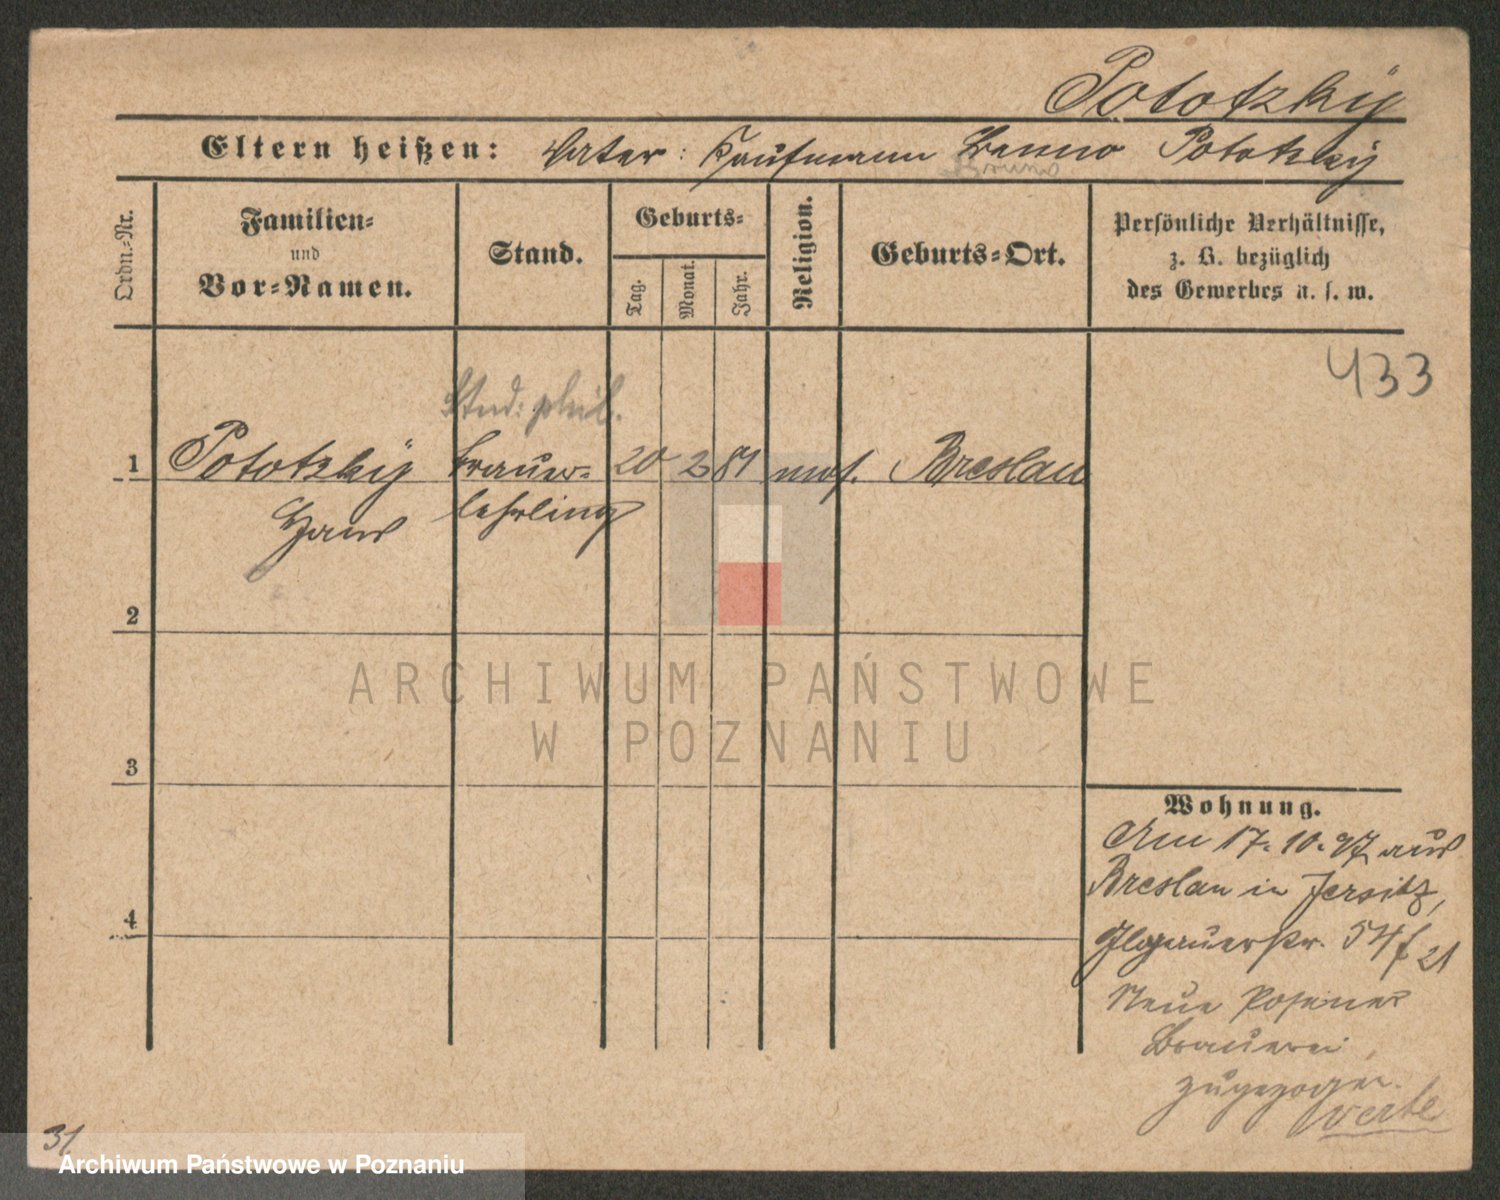 Pototzky
Eltern heißen: Vater: Kaufmann Benno Pototzky
Bruno
Ordn.-Nr.
Familien-
und
Vor-Namen.
Stand.
Geburts-
Tag.
Monat.
Jahr.
Religion.
Geburts-Ort.
Persönliche Verhältnisse,
z. B. bezüglich
des Gewerbes u. s. w.
433
Stud. phil.
1 Pototzky Brauer- 20 2 81 mos. Breslau
Hans lehrling
2
3
4
ARCHIWUM PAŃSTWOWE
W POZNANIU
Wohnung.
Am 17. 10. 97 aus
Breslau in Jersitz,
54 21
Neue Posener
Brauerei
zugezogen.
verte
31
Archiwum Państwowe w Poznaniu